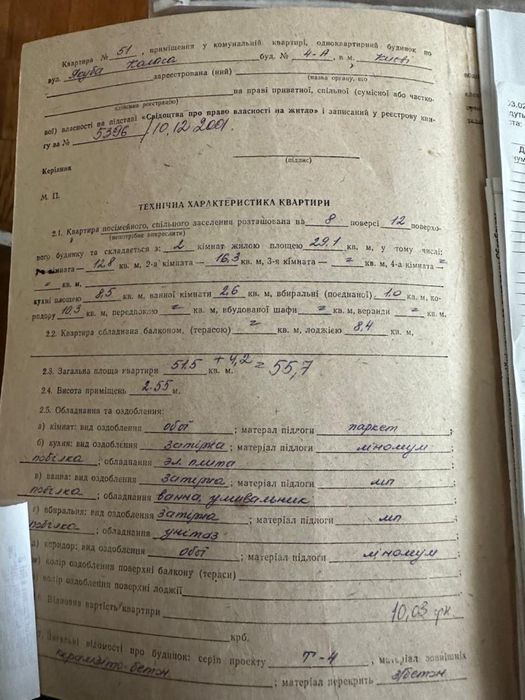 Квартира № 51, приміщення у комунальній квартирі, одноквартирний будинок по
вул. Якуба Коласа буд. № 4-А, в м. Київ
зареєстрована (ний)
(назва органу, що
здійснив реєстрацію) на праві приватної, спільної (сумісної або частко-
вої) власності на підставі «Свідоцтва про право власності на житло» і записаний у реєстрову кни-
гу за № 5396 / 10.12.2001.
Керівник
(підпис)
М. П.
ТЕХНІЧНА ХАРАКТЕРИСТИКА КВАРТИРИ
2.1. Квартира посімейного, спільного заселення розташована на 8 поверсі 12 поверхо-
(непотрібне викреслити)
вого будинку та складається з: 2 кімнат жилою площею 29,1 кв. м, у тому числі:
кімната — 12,8 кв. м, 2-а кімната — 16,3 кв. м, 3-я кімната — = кв. м, 4-а кімната — =
= кв. м,
кухні площею 8,5 кв. м, ванної кімнати 2,6 кв. м, вбиральні (поєднаної) 1,0 кв. м, ко-
ридору 10,3 кв. м, передпокою = кв. м, вбудованої шафи = кв. м, веранди = кв. м.
2.2. Квартира обладнана балконом, (терасою) = кв. м, лоджією 8,4 кв. м,
2.3. Загальна площа квартири 51.5 кв. м. + 4,2 = 55,7
2.4. Висота приміщень 2.55 м.
2.5. Обладнання та оздоблення:
а) кімнат: вид оздоблення обої; матерал підлоги паркет;
б) кухня: вид оздоблення затірка; матеріал підлоги ліноліум
побілка; обладнання ел. плита;
в) ванна: вид оздоблення затірка; матеріал підлоги мп
побілка; обладнання ванна, умивальник;
г) вбиральня: вид оздоблення затірка; матеріал підлоги мп
побілка; обладнання унітаз;
д) коридор: вид оздоблення обої; матеріал підлоги ліноліум;
колір оздоблення поверхні балкону (тераси)
колір оздоблення поверхні лоджії
Відновна вартість квартири 10,03 грн
крб.
Загальні відомості про будинок: серія проекту Т-4, матеріал зовнішніх
керамзито-бетон; матеріал перекрить з/бетон